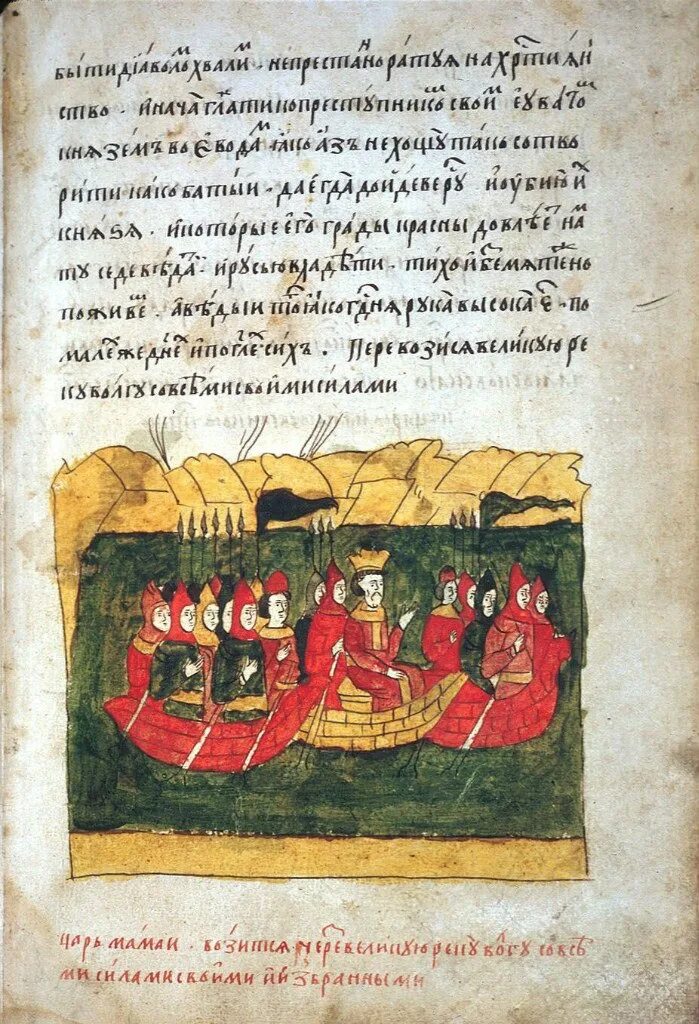 быти діаволо хвалим . непрестанно ратуя на хрⷭ҇тиꙗн
ство . и нача глати ко преступником своим еѵватом
княземъ воеводам ꙗко азъ не хощу тако сотво
рити како батыи . да егда доиде веру и оубию их
кнѧзѧ . и которые его грады красны довлѣет нам
ту седе и русью владѣти . тихо и безмѧтежно
поживем . а вѣдыи того ꙗко гднѧ рука высока ест . по
мале же днех и по сих . перевозися великую ре
ку волгу со всѣми своими силами
царь мамаи . возитсѧ чрез великую реку волгу со всѣ
ми силами своими и избранными